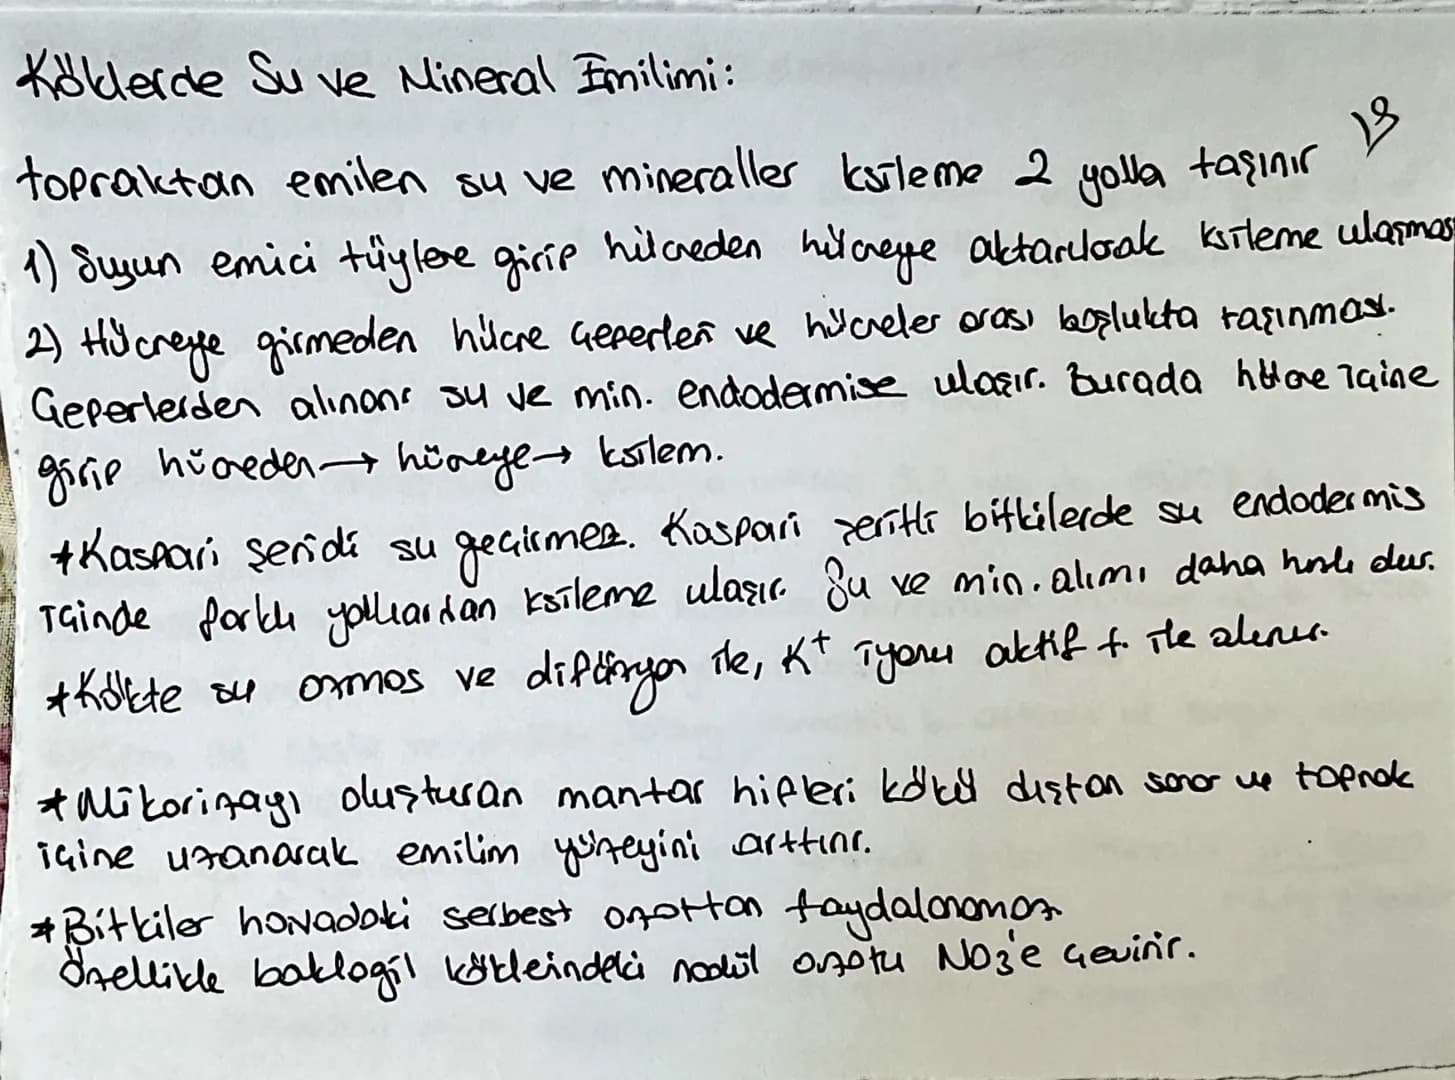 Köklerde Su ve Mineral Emilimi:
13
topraktan emilen su ve mineraller ksileme 2 yolla taşınır
1) Suyun emici tüylere girip hücreden hücreye aktarılarak ksileme ulaşması
2) Hücreye girmeden hücre çeperleri ve hücreler arası boşlukta taşınması.
Çeperlerden alınan su ve min. endodermise ulaşır. Burada hücre içine
girip hücreden → hücreye → ksilem.
*Kaspari şeridi su geçirmez. Kaspari şeritli bitkilerde su endodermis
içinde farklı yollardan ksileme ulaşır. Su ve min. alımı daha hızlı dır.
*Kökte su ozmos ve difüzyon ile, K+ iyonu aktif t. ile alınır.
*Mikorizayı oluşturan mantar hifleri kökü dıştan sarar ve toprak
içine uzanarak emilim yüzeyini arttırır.
*Bitkiler havadaki serbest azottan faydalanamaz
Özellikle baklagil köklerindeki nodül azotu NO3'e çevirir.